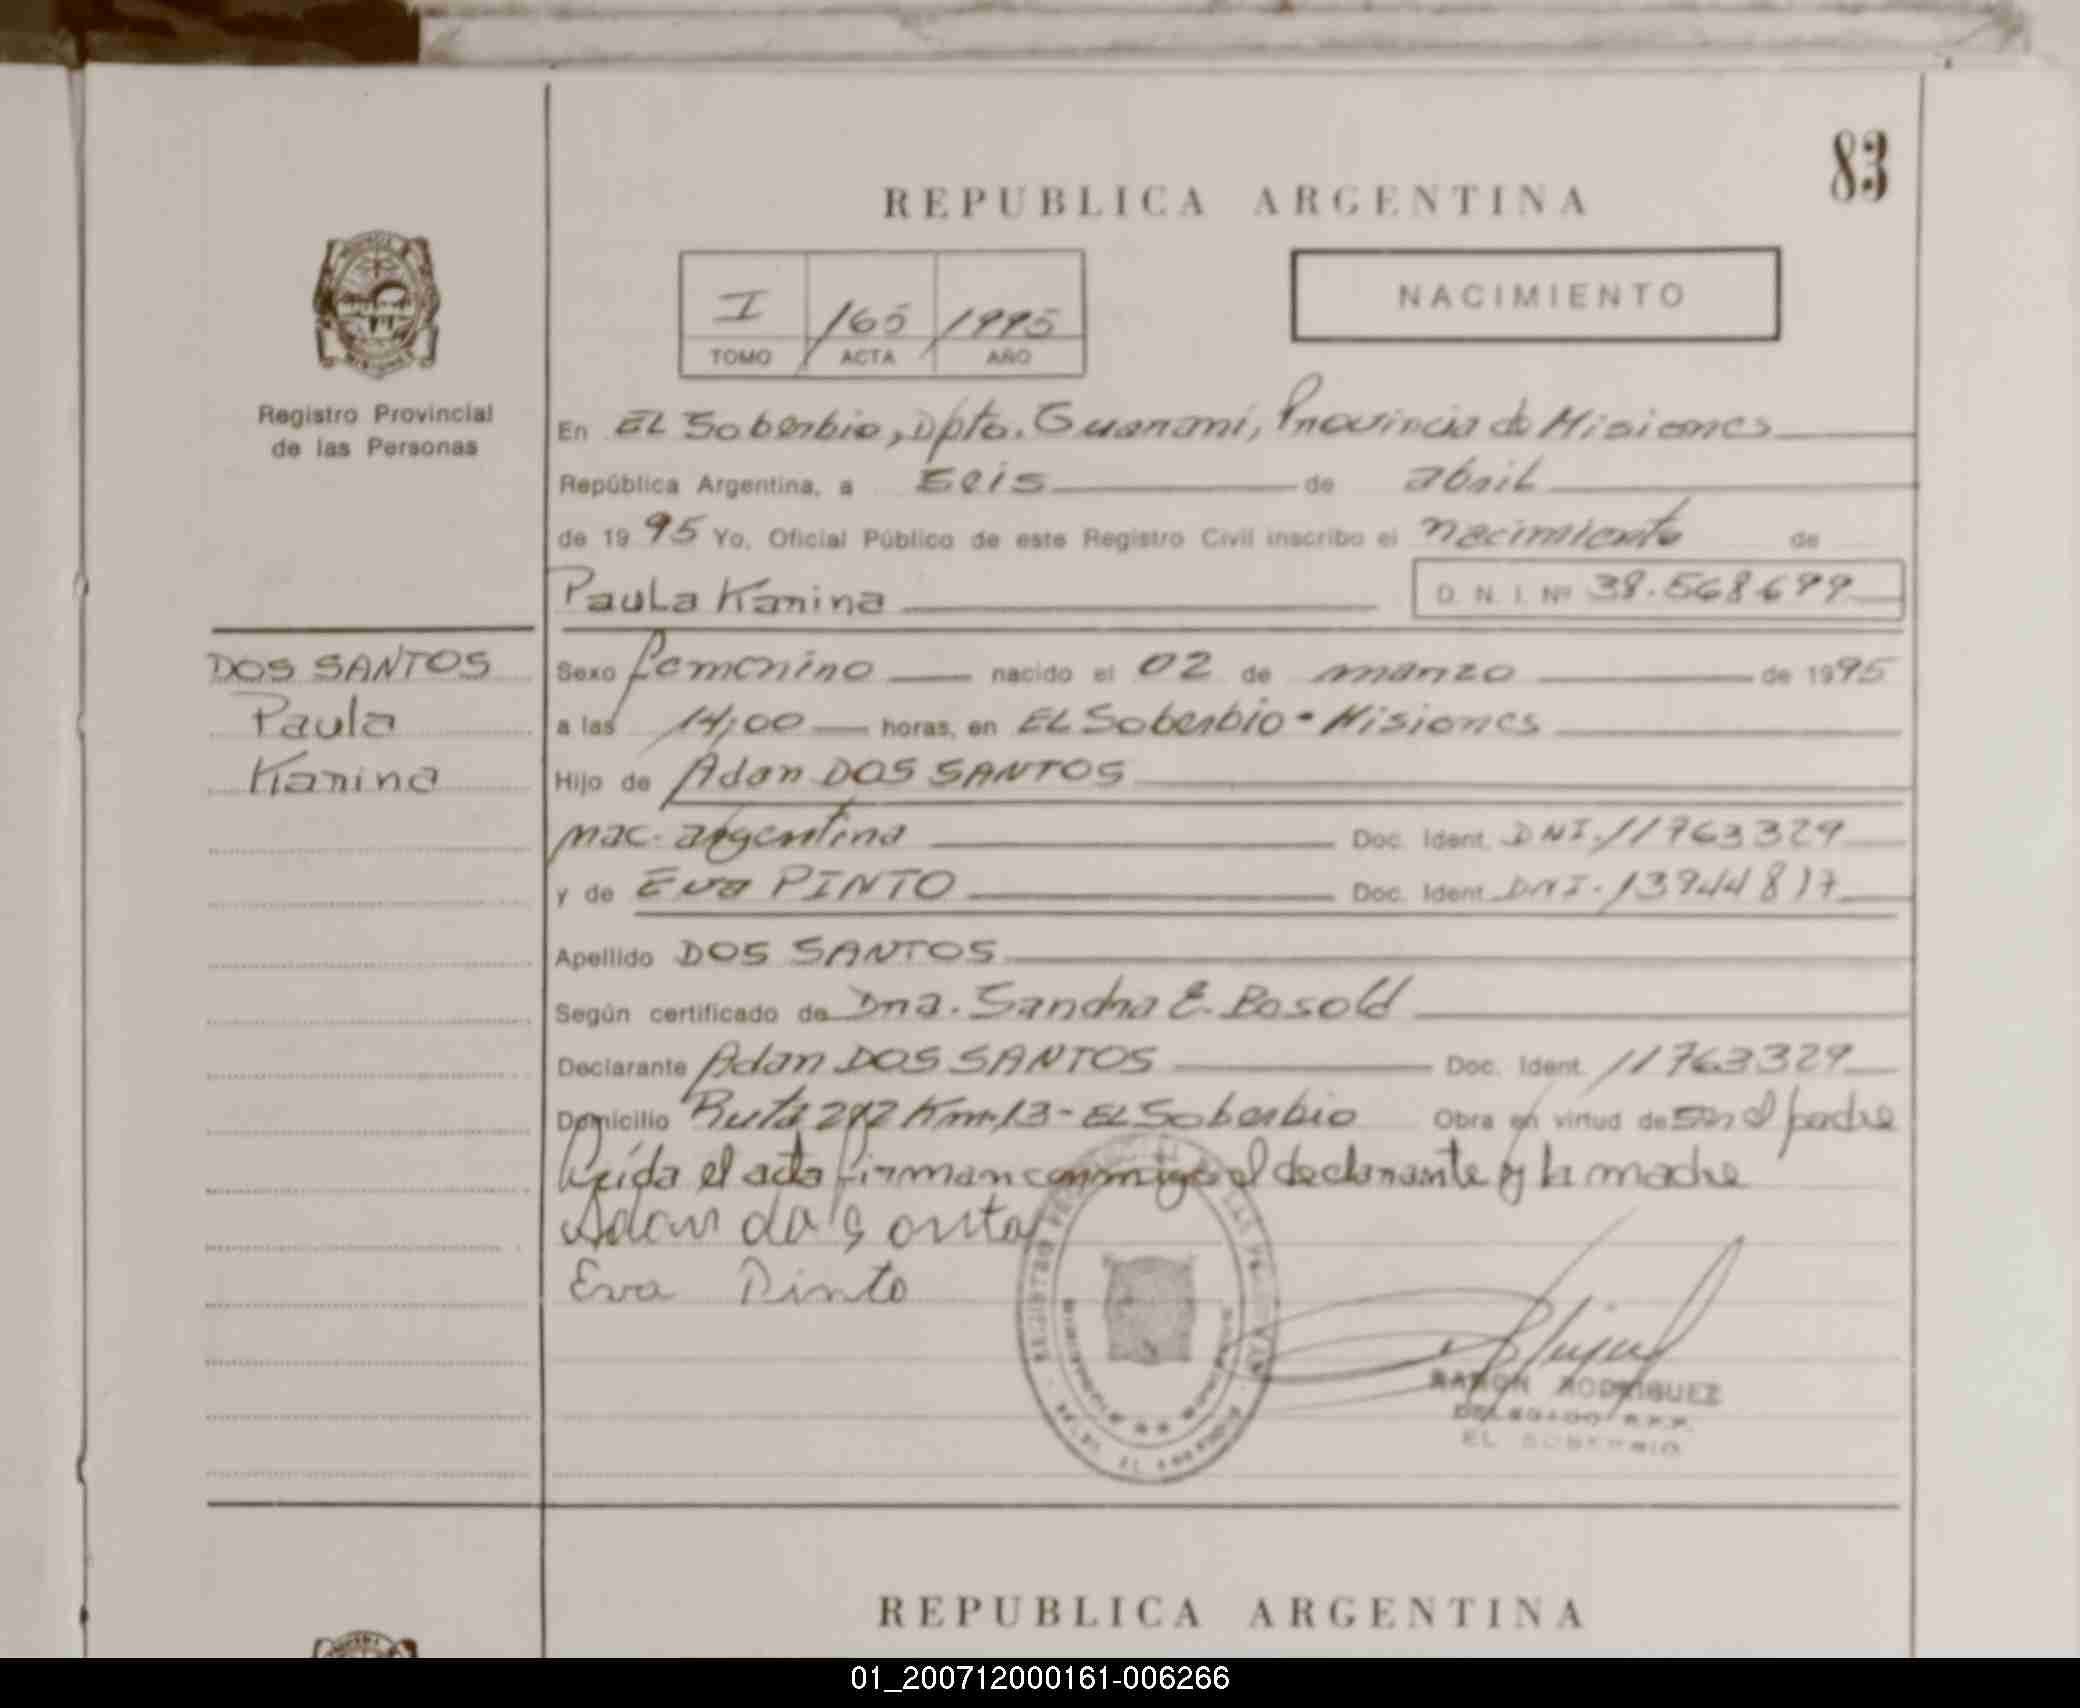 83
REPUBLICA ARGENTINA
I 165 1995
TOMO ACTA AÑO
NACIMIENTO
Registro Provincial
de las Personas
En EL Soberbio, Dpto. Guaraní, Provincia de Misiones
República Argentina, a seis de abril
de 1995 Yo, Oficial Público de este Registro Civil inscribo el nacimiento de
Paula Karina D. N. I. Nº 38.568.699
DOS SANTOS
Paula
Karina
Sexo femenino nacido el 02 de marzo de 1995
a las 14,00 horas, en EL Soberbio - Misiones
Hijo de Adan DOS SANTOS
nac. argentina Doc. Ident. DNI. 11763329
y de Eva PINTO Doc. Ident. DNI. 13944817
Apellido DOS SANTOS
Según certificado de Dra. Sandra E. Bosold
Declarante Adan DOS SANTOS Doc. Ident. 11763329
Domicilio Ruta 212 Km. 13 - EL Soberbio Obra en virtud de ser el padre
Leída el acta firman conmigo el declarante y la madre
Adan
Eva Pinto
RAMON RODRIGUEZ
DELEGADO R.P.P.
EL SOBERBIO
REPUBLICA ARGENTINA
01_200712000161-006266